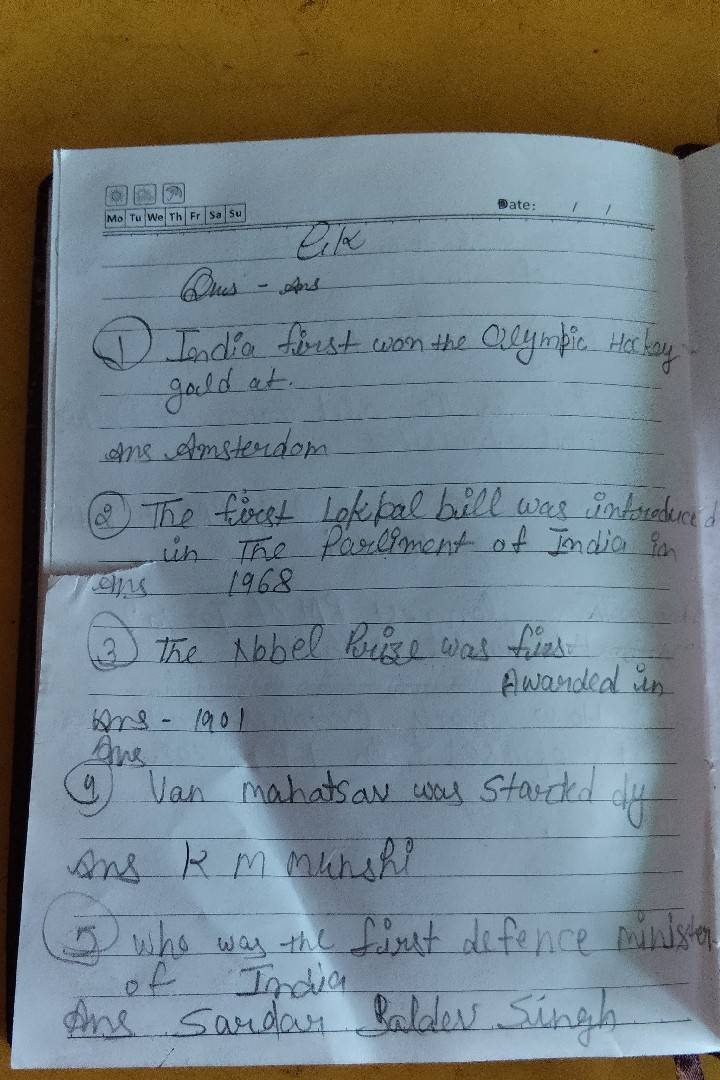 Mo Tu We Th Fr Sa Su
Date: / /
GK
Ques - Ans
① India first won the Olympic Hockey
gold at.
Ans Amsterdom
② The first Lokpal bill was introduced
in The Parliment of India in
Ans 1968
③ The Nobel Prize was firs
Awarded in
Ans - 1901
Ans
④ Van mahatsav was Starded dy
Ans K M munshi
⑤ who was the first defence minister
of India
Ans Sardar Baldev Singh